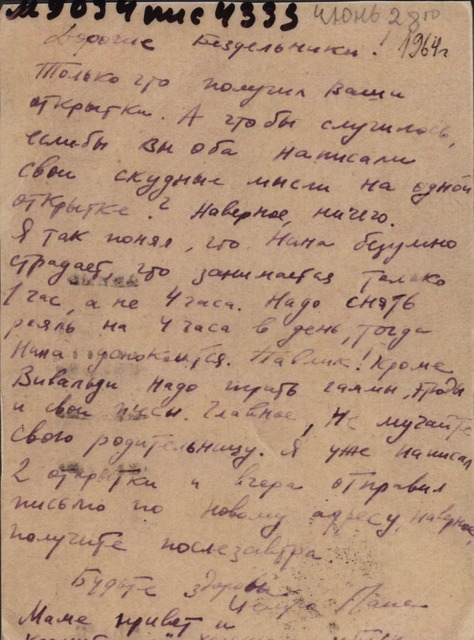 М7034 пис 4333 июнь 28го
Дорогие Бездельники! 1964г
Только что получил Ваши
открытки. А что бы случилось,
если бы Вы оба написали
свои скудные мысли на одной
открытке? Наверное, ничего.
Я так понял, что Нана безумно
страдает, что занимается только
1 час, а не 4 часа. Надо снять
рояль на 4 часа в день, тогда
Нана успокоится. Павлик! Кроме
Вивальди надо играть гаммы, этюды
и свои пьесы. Главное, не мучайте
свою родительницу. Я уже написал
2 открытки и вчера отправил
письмо по новому адресу, наверное
получите послезавтра.
Будьте здоровы
Целую Папа
Маме привет и